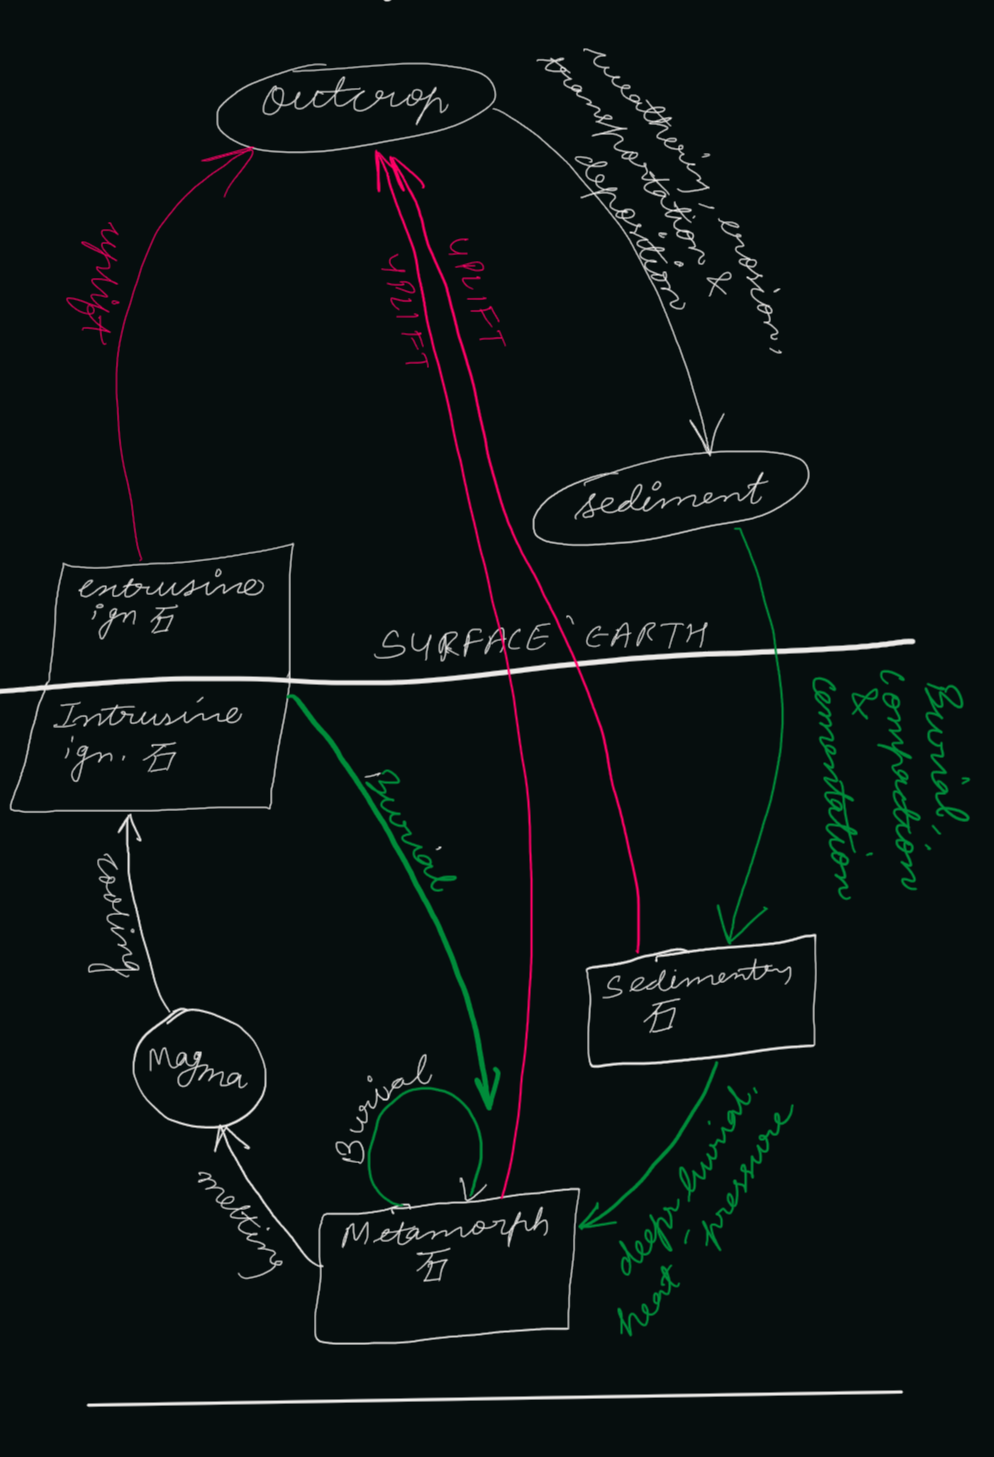 outcrop
weathering, erosion,
transportation &
deposition
uplift
UPLIFT
UPLIFT
sediment
entrusine
ign 石
SURFACE EARTH
Intrusine
ign. 石
Burial,
Compaction
&
cementation
Burial
cooling
Sedimentry
石
Magma
Burial
melting
Metamorph
石
deepr burial,
heat - pressure